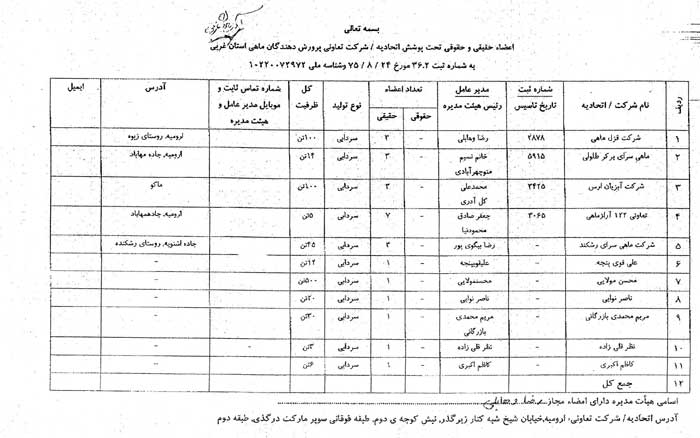 بسمه تعالی
اعضاء حقیقی و حقوقی تحت پوشش اتحادیه / شرکت تعاونی پرورش دهندگان ماهی استان غربی
به شماره ثبت ۳۶۰۲ مورخ ۲۴ / ۸ / ۷۵ وشناسه ملی ۱۰۲۲۰۰۷۲۹۷۲
ردیف نام شرکت / اتحادیه شماره ثبت تاریخ تاسیس مدیر عامل رئیس هیئت مدیره تعداد اعضاء حقوقی حقیقی نوع تولید کل ظرفیت شماره تماس ثابت و موبایل مدیر عامل و هیئت مدیره آدرس ایمیل
۱ شرکت قزل ماهی ۲۸۷۸ رضا وهابلی - ۳ سردابی ۱۰۰تن ارومیه، روستای زیوه
۲ ماهی سرای پرکر طلولی ۵۹۱۵ خانم نسیم منوچهرآبادی - ۳ سردابی ۱۴تن ارومیه، جاده مهاباد
۳ شرکت آبزیان ارس ۳۴۲۵ محمدعلی کل آذری - ۳ سردابی ۱۰۰تن ماکو
۴ تعاونی ۱۲۲ آرازماهی ۳۰۶۵ جعفر صادق محمودنیا - ۷ سردابی ۵تن ارومیه، جادهمهاباد
۵ شرکت ماهی سرای رشکند - رضا بیگوی پور - ۳ سردابی ۴۵تن جاده اشنویه، روستای رشکنده
۶ علی قوی پنجه - علیقویپنجه - ۱ سردابی ۱۴تن -
۷ محسن مولایی - محسنمولایی - ۱ سردابی ۵۰۰تن -
۸ ناصر نوایی - ناصر نوایی - ۱ سردابی ۲۰تن -
۹ مریم محمدی بازرگانی - مریم محمدی بازرگانی - ۱ سردابی ۳۰تن -
۱۰ نظر قلی زاده - نظر قلی زاده - ۱ سردابی ۳تن -
۱۱ کاظم اکبری - کاظم اکبری - ۱ سردابی ۶تن -
۱۲ جمع کل
اسامی هیأت مدیره دارای امضاء مجاز
آدرس اتحادیه/ شرکت تعاونی، ارومیه،خیابان شیخ شپه کنار زیرگذر، نبش کوچه ی دوم، طبقه فوقانی سوپر مارکت درگذی، طبقه دوم